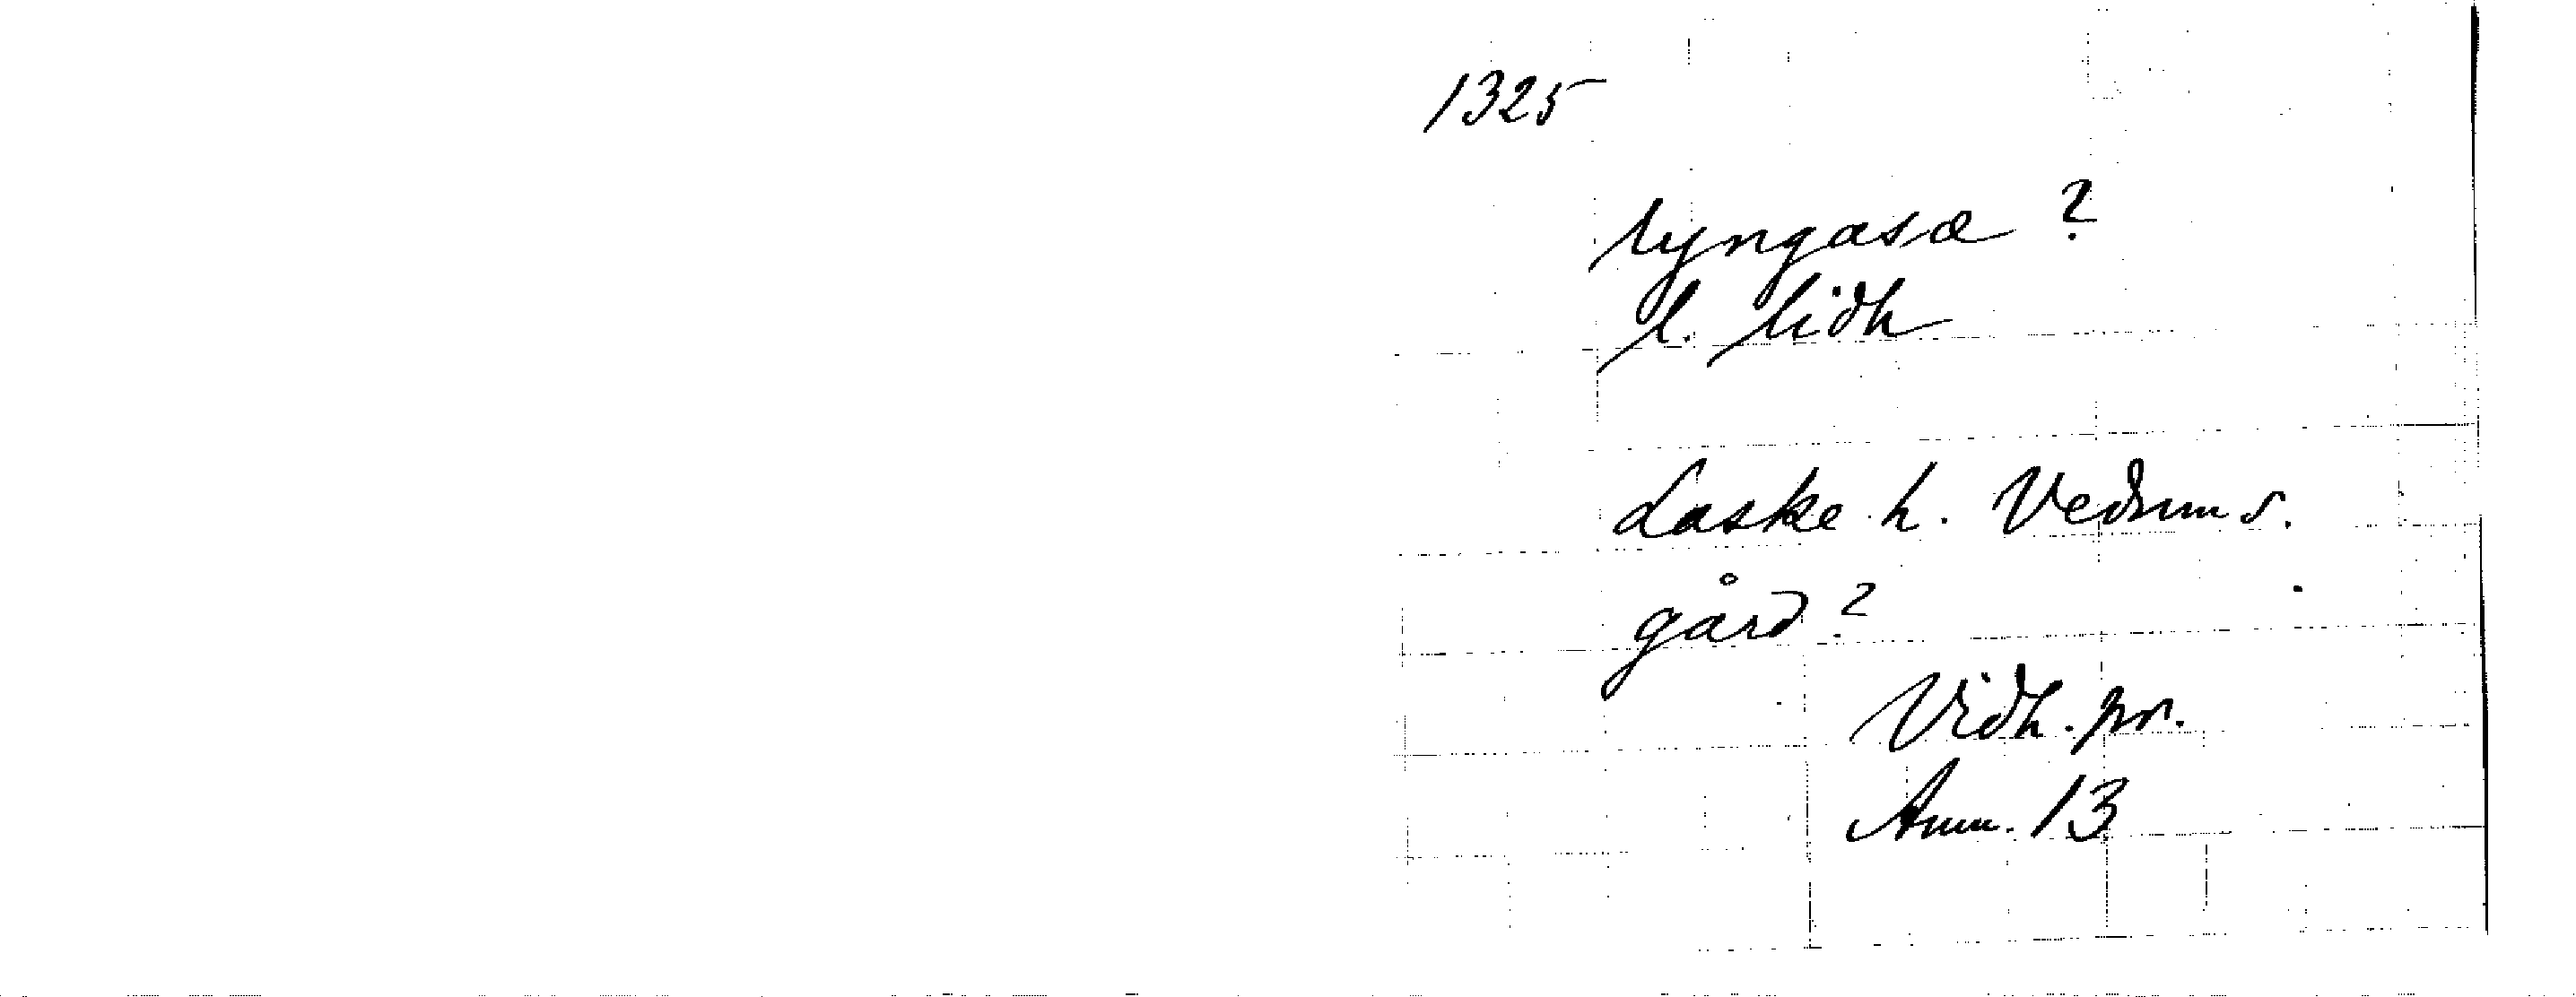 1325
lyngasæ?
l. lidh
Laske h. Vedums s.
gård?
Vidh. pr.
Anm. 13